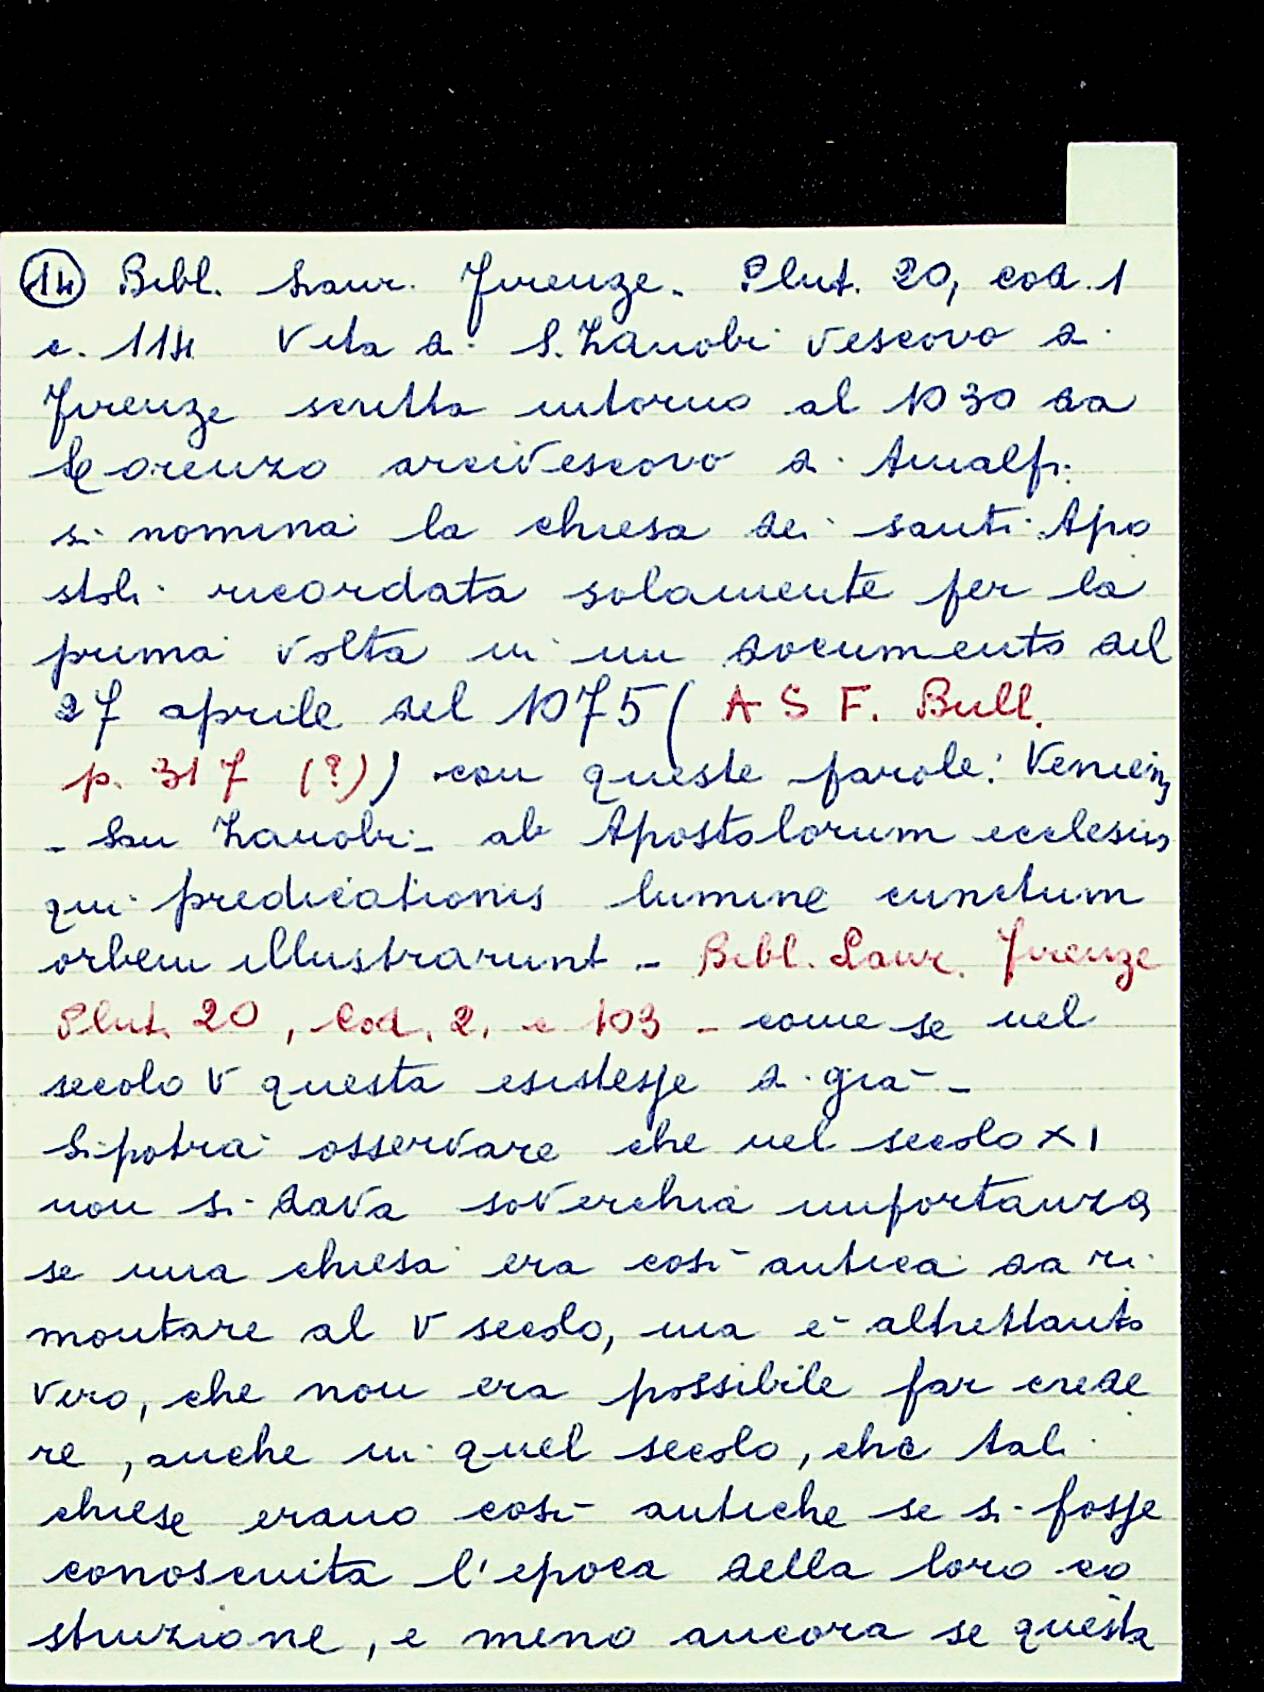 14 Bibl. Laur. Firenze. Plut. 20, cod. 1
c. 114 Vita di S. Zanobi vescovo di
Firenze scritta intorno al 1030 da
Lorenzo arcivescovo di Amalfi.
si nomina la chiesa dei santi Apo
stoli ricordata solamente per la
prima volta in un documento del
27 aprile del 1075 ( A S F. Bull.
p. 317 (?)) con queste parole: Veniens
- San Zanobi - ab Apostolorum ecclesiis
qui predicationis lumine cunctum
orbem illustrarunt - Bibl. Laur. Firenze
Plut. 20, Cod. 2, c 103 - come se nel
secolo V questa esistesse di già -
Si potrà osservare che nel secolo XI
non si dava soverchia importanza
se una chiesa era così antica da ri
montare al V secolo, ma è altrettanto
vero, che non era possibile far crede
re, anche in quel secolo, che tali
chiese erano così antiche se si fosse
conosciuta l'epoca della loro co
struzione, e meno ancora se questa